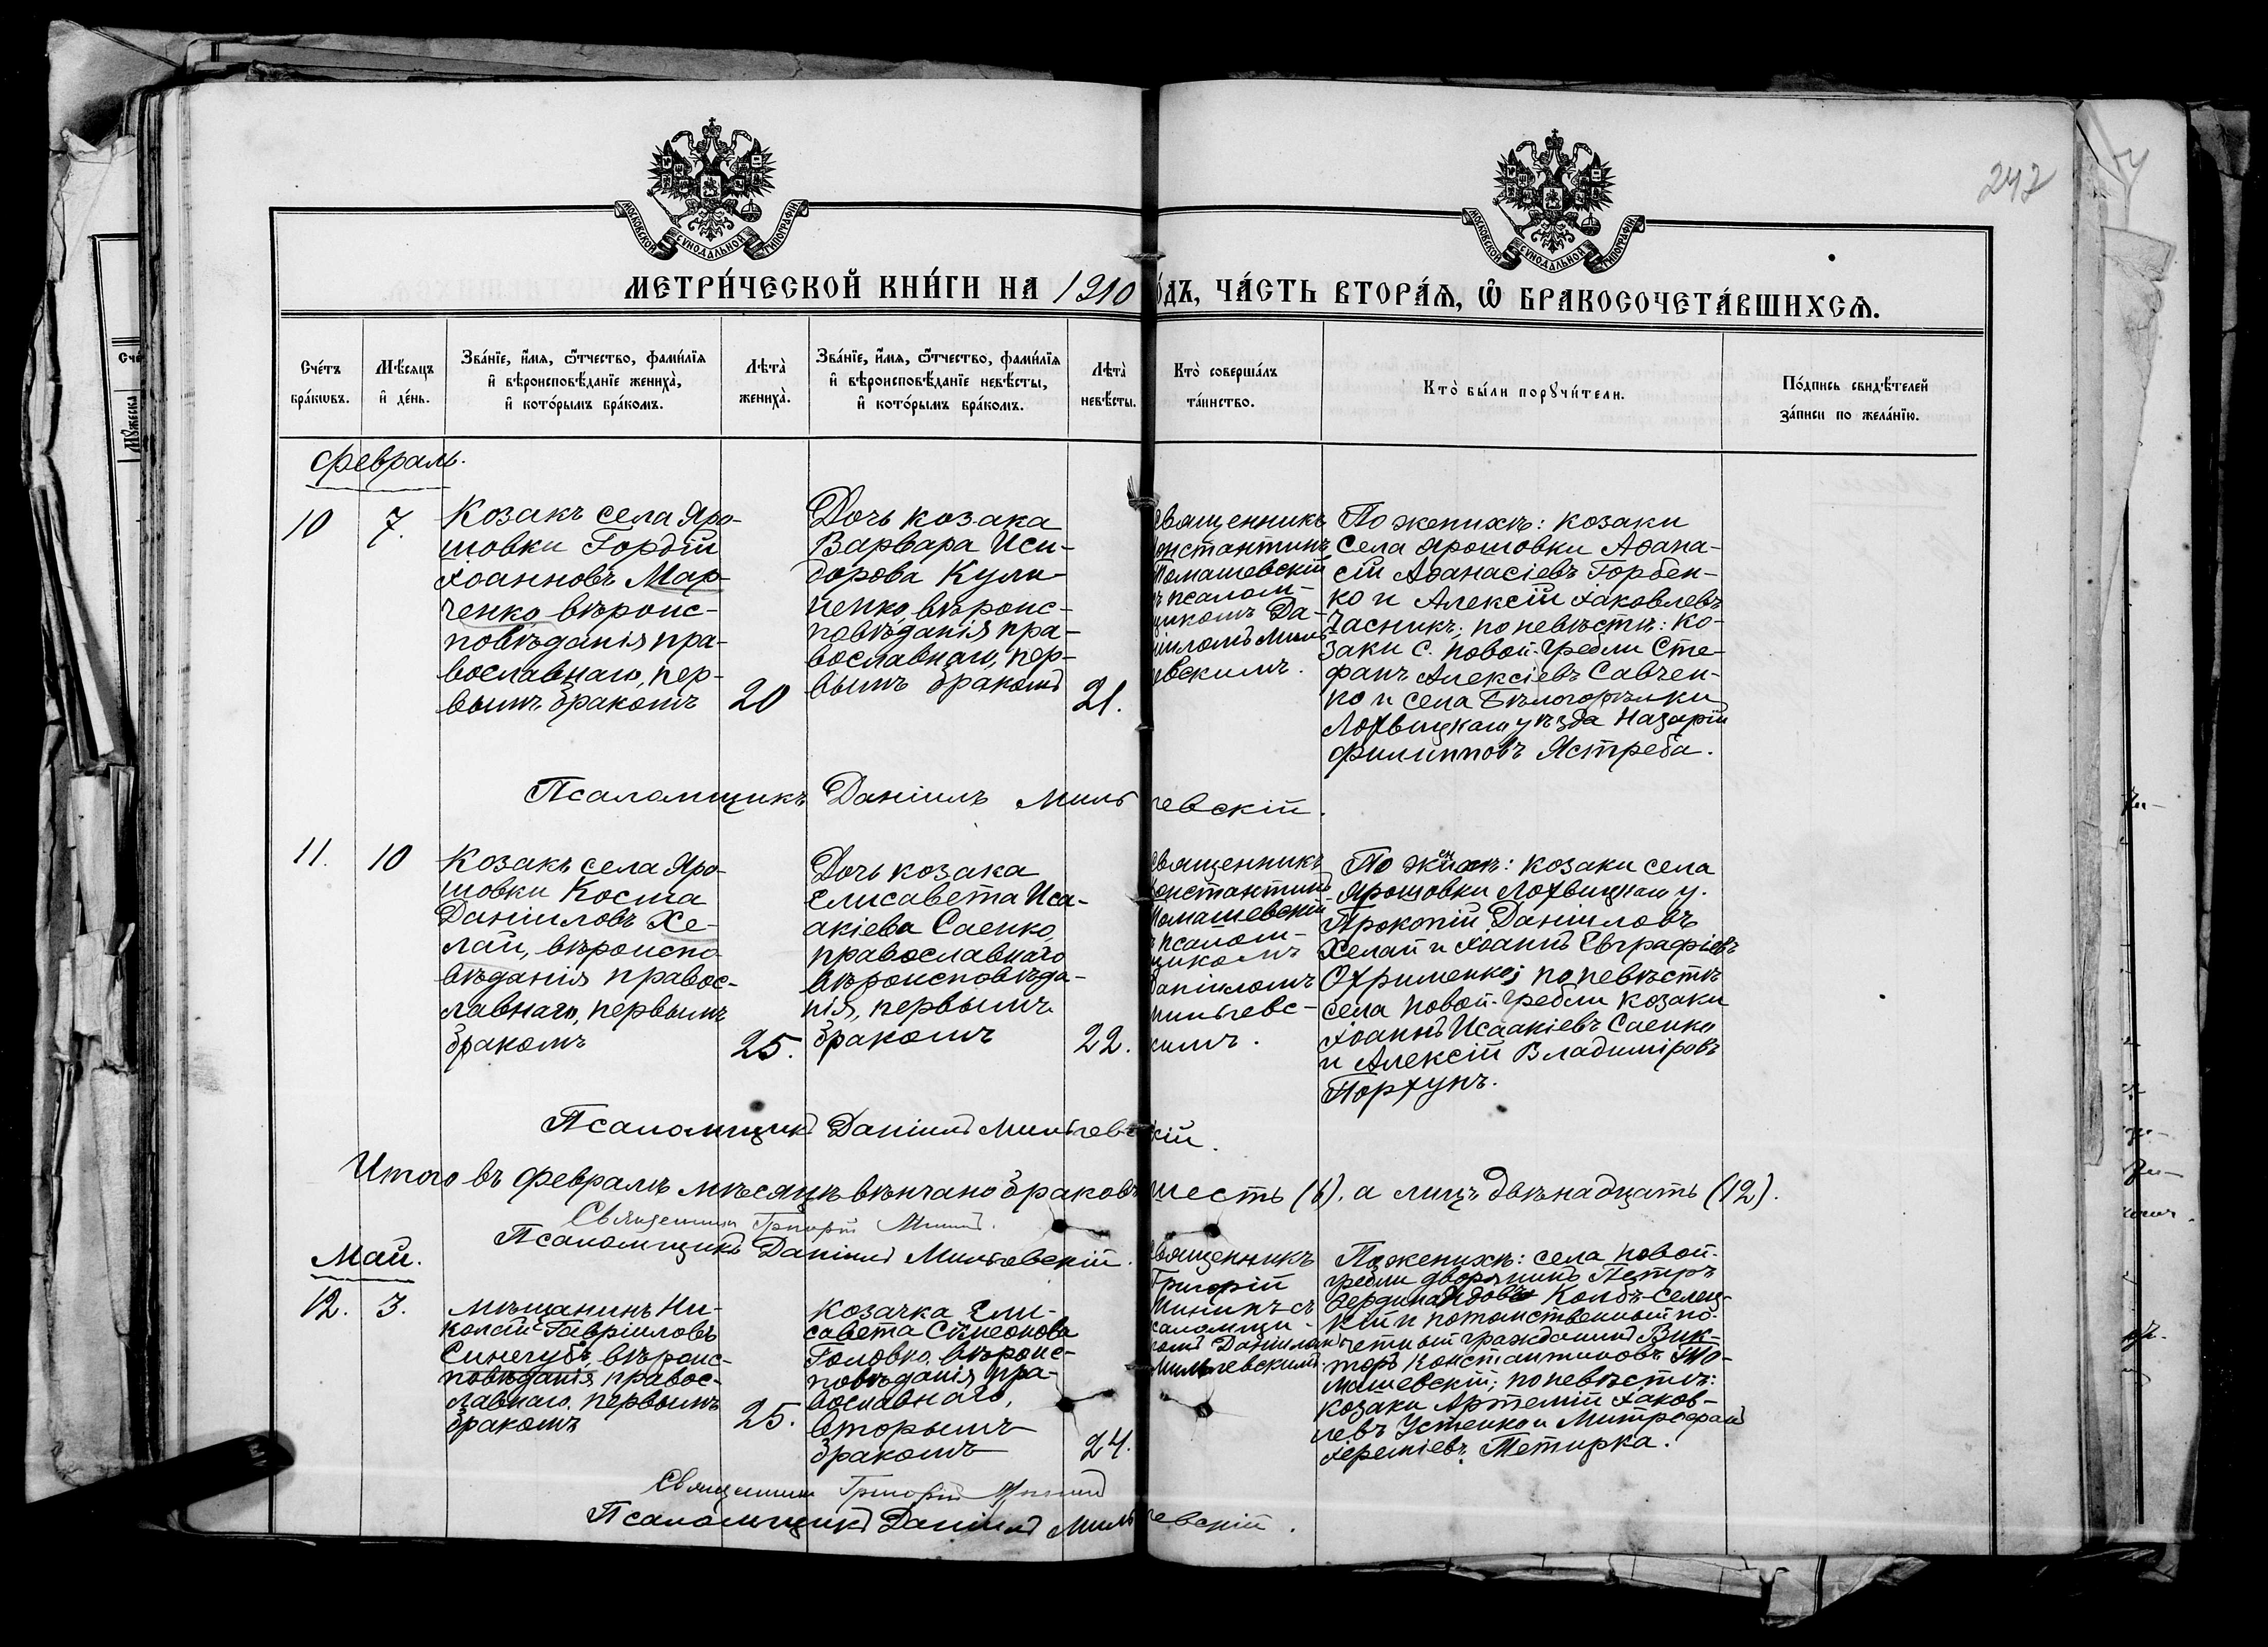 242
МОСКОВСКОЙ СУНОДАЛЬНОЙ ТИПОГРАФІИ
МОСКОВСКОЙ СУНОДАЛЬНОЙ ТИПОГРАФІИ
МЕТРИ́ЧЕСКОЙ КНИ́ГИ НА 1910
О́ДЪ, ЧА́СТЬ ВТОРА́Ѧ, Ѽ БРАКОСОЧЕТА́ВШИХСѦ.
Сче́тъ
бра́кѡвъ.
Мѣ́сяцъ
и҆ де́нь.
Зва́нїе, и҆́мя, ѻ҆́тчество, фами́лїя
и҆ вѣроисповѣ́данїе жениха̀,
и҆ кото́рымъ бра́комъ.
Лѣта̀
жениха̀.
Зва́нїе, и҆́мя, ѻ҆́тчество, фами́лїя
и҆ вѣроисповѣ́данїе невѣ́сты,
и҆ кото́рымъ бра́комъ.
Лѣта̀
невѣ́сты.
Кто̀ соверша́лъ
та́инство.
Кто̀ бы́ли порꙋчи́тели.
По́дпись свидѣ́телей
за́писи по жела́нїю.
Февраль.
10
7.
Козакъ села Яро-
шовки Гордій
Іоанновъ Мар-
ченко, вѣроис-
повѣданія пра-
вославнаго, пер-
вымъ бракомъ
20
Дочь козака
Варвара Иси-
дорова Кули-
ненко, вѣроис-
повѣданія пра-
вославнаго, пер-
вымъ бракомъ
21.
священникъ
Константинъ
Томашевскій
съ псалом-
щикомъ Да-
ніиломъ Миль
евскимъ.
По женихѣ: козаки
села Ярошовки Аѳана-
сій Аѳанасіевъ Горбен-
ко и Алексій Іаковлевъ
Часникъ; по невѣстѣ: ко-
заки с. Новой-Гребли Сте-
фанъ Алексіевъ Савчен-
ко и села Бѣлогорѣлки
Лохвицкаго уѣзда Назарій
Филипповъ Ястреба.
Псаломщикъ Даніилъ Миль чевскій.
11.
10
Козакъ села Яро-
шовки Косма
Даніиловъ Хе-
лай, вѣроиспо-
вѣданія правос-
лавнаго, первымъ
бракомъ
25.
Дочь козака
Елисавета Иса-
акіева Саенко
православнаго
вѣроисповѣда-
нія, первымъ
бракомъ
22.
священникъ
Константинъ
Томашевскій
ъ псалом-
щикомъ
Даніиломъ
Мильчевс-
кимъ.
По женихѣ: козаки села
Ярошовки Лохвицкаго у.
Прокопій Даніиловъ
Хелай и Іоаннъ Евграфіевъ
Охрименко; по невѣстѣ
села Новой-Гребли козаки
Іоаннъ Исаакіевъ Саенко
и Алексій Владиміровъ
Портунъ.
Псаломщикъ Даніилъ Мильчевскій.
Итого въ Февралѣ мѣсяцѣ вѣнчано браковъ шесть (6), а лицъ двѣнадцать (12).
Священникъ Григорій Мининъ.
Псаломщикъ Даніилъ Мильчевскій.
Май.
12.
3.
Мѣщанинъ Ни-
колай Гавріиловъ
Синегубъ, вѣроис-
повѣданія правос-
лавнаго, первымъ
бракомъ
25.
Козачка Ели-
савета Симеонова
Головко, вѣроис-
повѣданія пра-
вославнаго,
вторымъ
бракомъ
24.
священникъ
Григорій
Мининъ съ
саломщи-
комъ Даніиломъ
Мильчевскимъ.
По женихѣ: села Новой-
Гребли дворянинъ Петръ
Фердинандовъ Колбъ-Селец-
кій и потомственный по-
четный гражданинъ Вик-
торъ Константиновъ То-
машевскій; по невѣстѣ:
козаки Артемій Іаков-
левъ Устенко и Митрофанъ
Іереміевъ Тетирка.
Священникъ Григорій Мининъ
Псаломщикъ Даніилъ Миль чевскій.